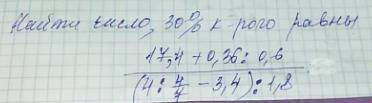 Найти число, 30% к-рого равны
17,4 + 0,36 : 0,6
(4 : 4/7 - 3,4) : 1,8